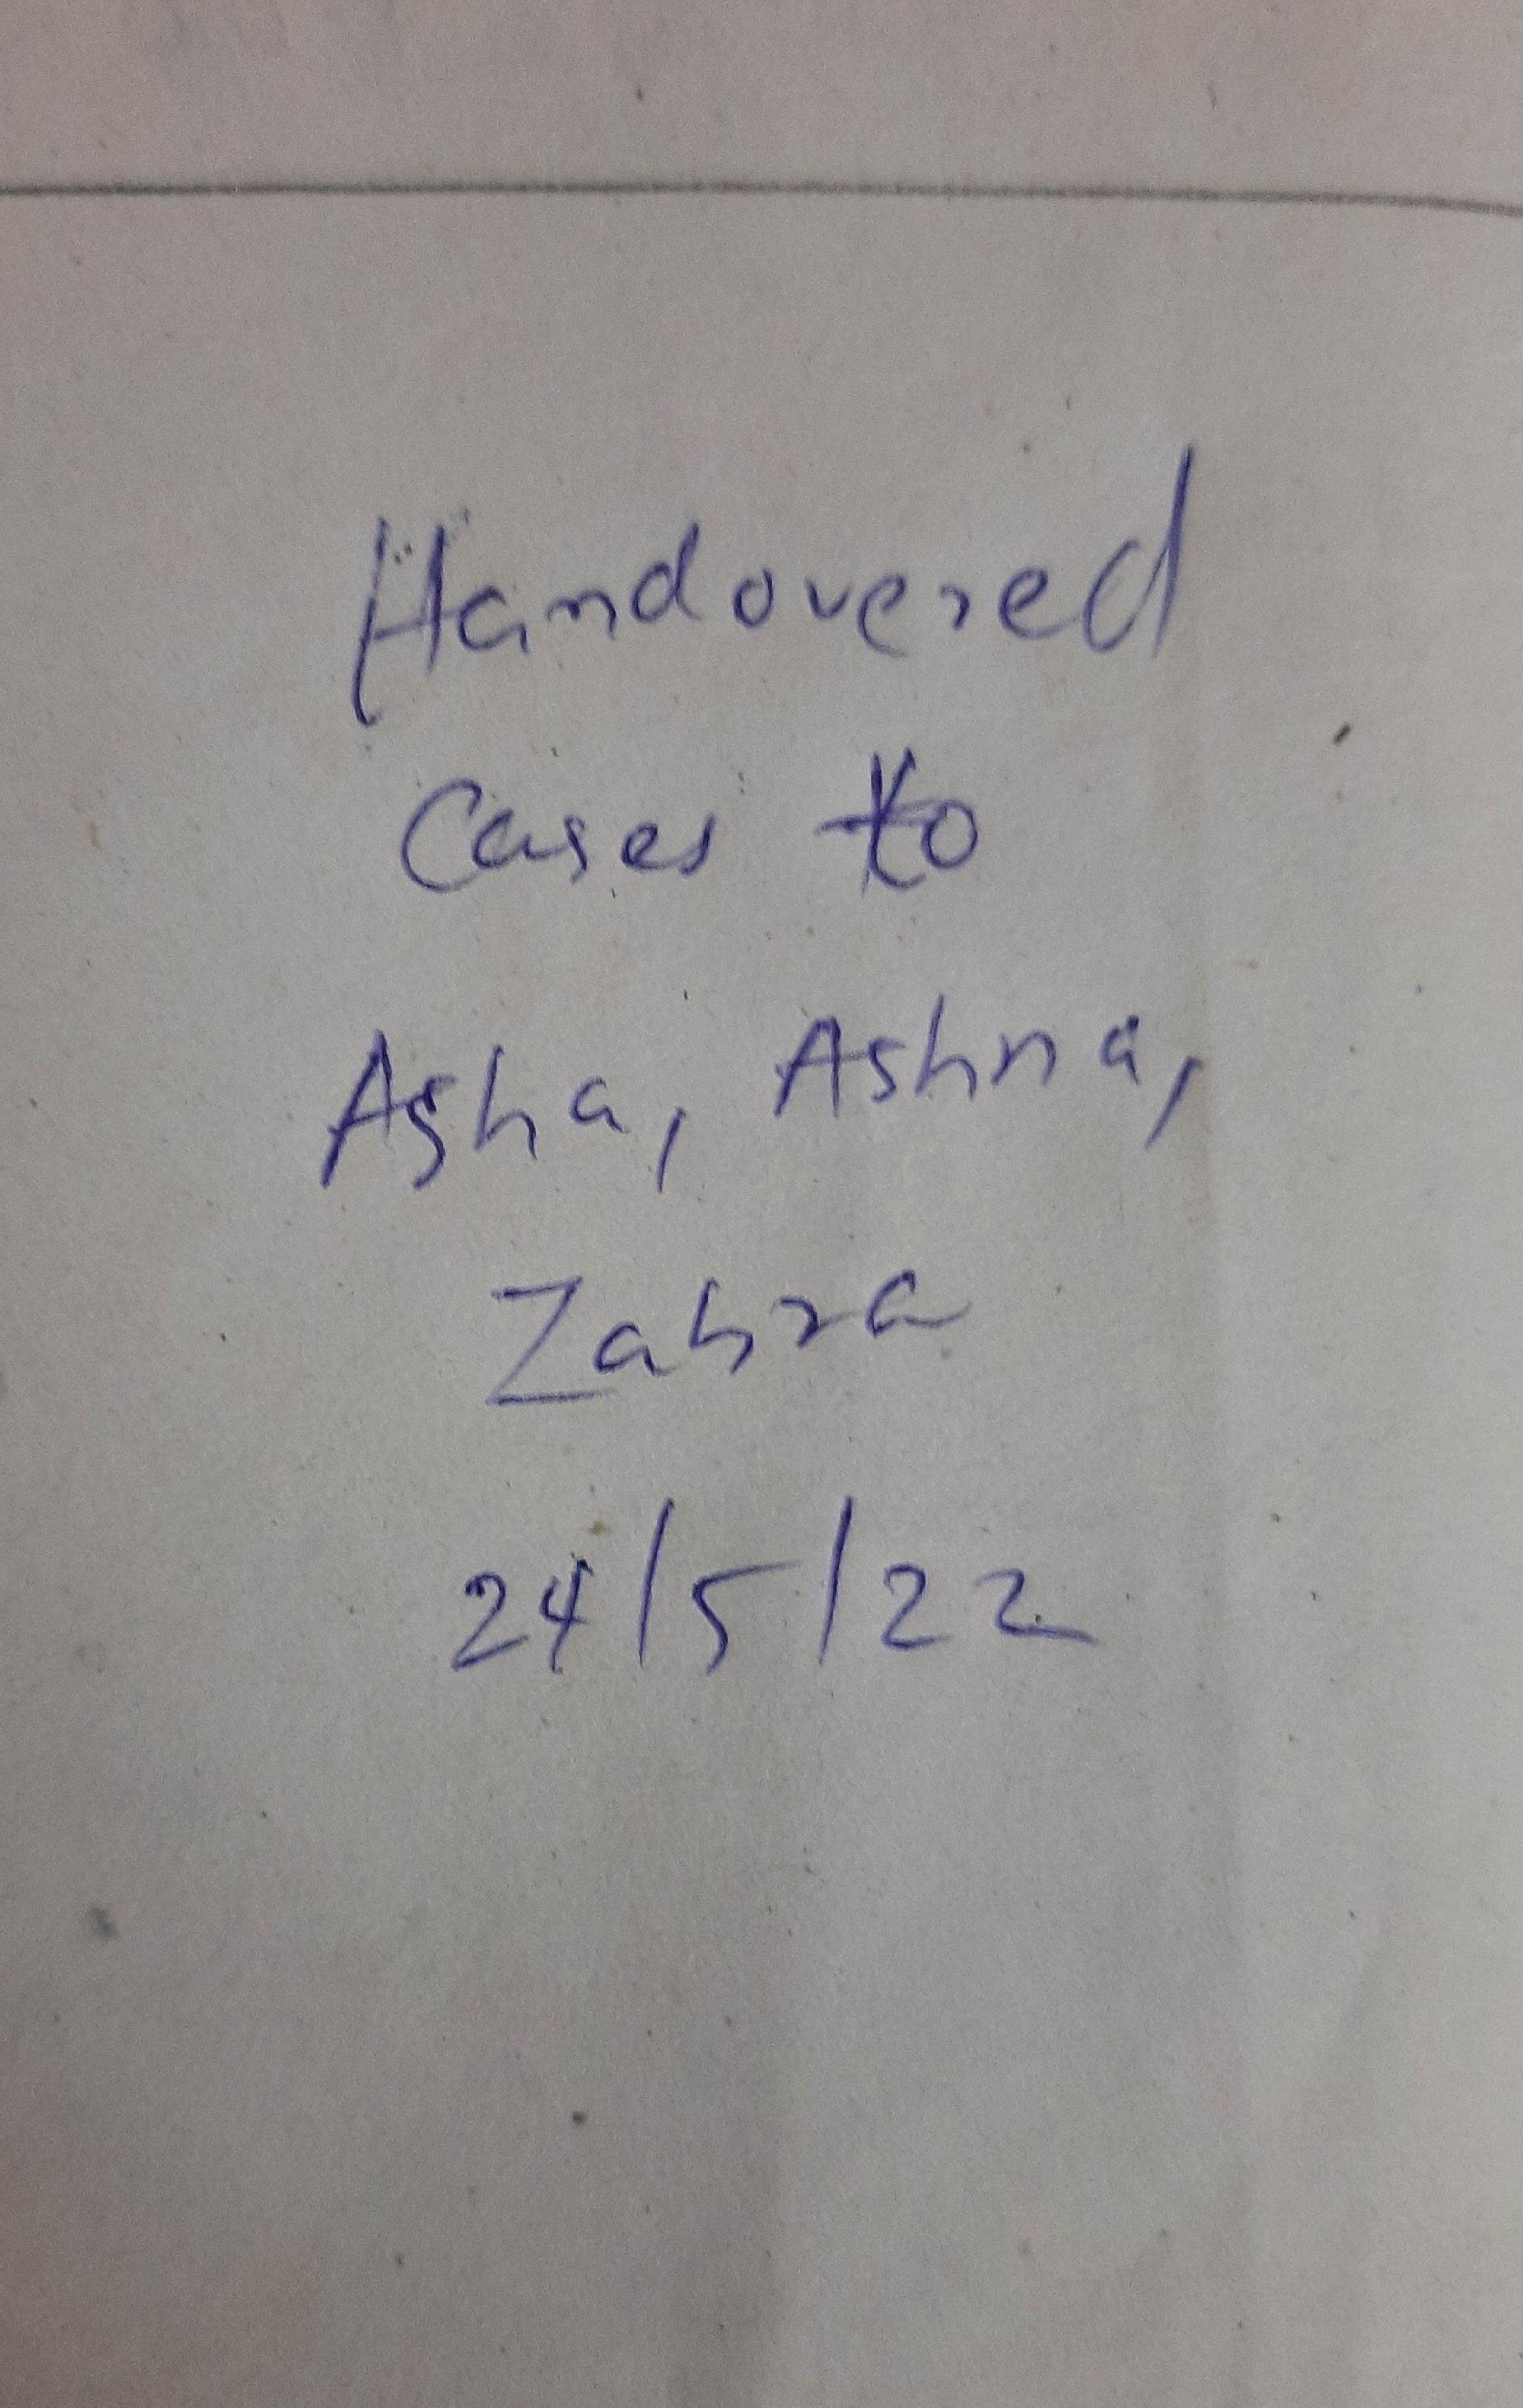 Handovered
Cases to
Asha, Ashna,
Zahra
24/5/22